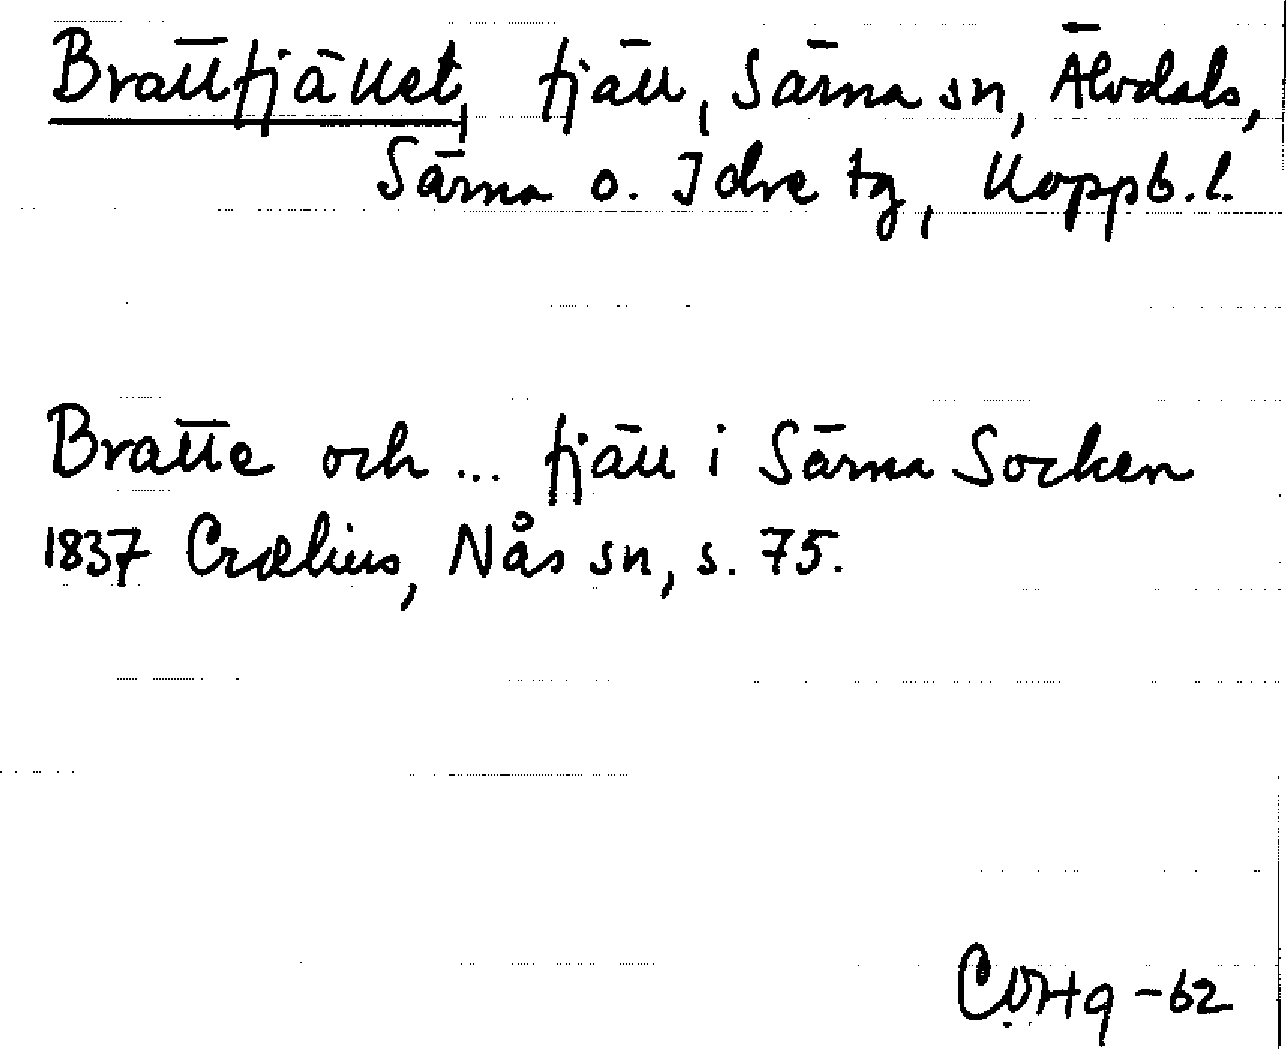 Brattfjället, fjäll, Särna sn, Älvdals,
Särna o. Idre tg, Koppb. l.
Bratte och ... fjäll i Särna Socken
1837 Crælius, Nås sn, s. 75.
-62